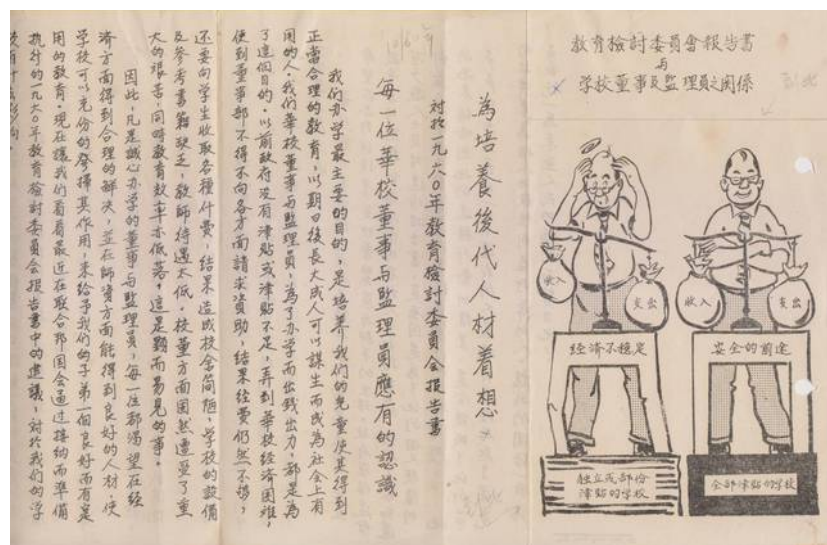 教育檢討委員會報告書
与
学校董事及監理員之関係
收入
支出
收入
支出
経済不穩定
安全的前途
独立或部份
津貼的学校
全部津貼的学校
為培養後代人材着想
対於一九六〇年教育檢討委員会报告書
每一位華校董事与監理員應有的認識
我们办学最主要的目的，是培养我们的兒童使其得到
正當合理的教育，以期日後長大成人可以謀生而成為社会上有
用的人。我们華校董事与監理員，為了办学而出錢出力，都是為
了這個目的。以前政府没有津貼或津貼不足，弄到華校経済困难，
使到董事部不得不向各方面請求資助，結果経費仍然不够，
还要向学生收取各種什費，結果造成校舍简陋，学校的設備
及参考書籍缺乏，教師待遇太低，校董方面固然遭受了重
大的艰苦，同時教育效率亦低落，這是顕而易見的事。
因此，凡是誠心办学的董事与監理員，每一位都渴望在経
済方面得到合理的解决，並在師資方面能得到良好的人材，使
学校可以充份的發揮其作用，来給予我们的子弟一個良好而有
用的教育。現在讓我们看看最近在联合邦国会通过接纳而準備
执行的一九六〇年教育檢討委員会报告書中的建議，対於我们的学